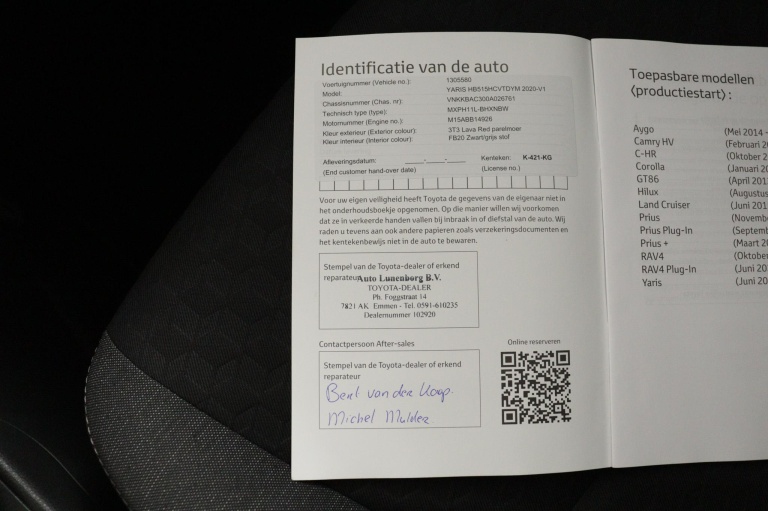 Identificatie van de auto
Voertuignummer (Vehicle no.): 1305580
Model: YARIS HB515HCVTDYM 2020-V1
Chassisnummer (Chas. nr): VNKKBAC300A026761
Technisch type (type): MXPH11L-BHXNBW
Motornummer (Engine no.) M15ABB14926
Kleur exterieur (Exterior colour): 3T3 Lava Red parelmoer
Kleur interieur (Interior colour): FB20 Zwart/grijs stof
Afleveringsdatum: ____-____-____ Kenteken: K-421-KG
(End customer hand-over date) (License no.)
Voor uw eigen veiligheid heeft Toyota de gegevens van de eigenaar niet in
het onderhoudsboekje opgenomen. Op die manier willen wij voorkomen
dat ze in verkeerde handen vallen bij inbraak in of diefstal van de auto. Wij
raden u tevens aan ook andere papieren zoals verzekeringsdocumenten en
het kentekenbewijs niet in de auto te bewaren.
Stempel van de Toyota-dealer of erkend
reparateur
Auto Lunenborg B.V.
TOYOTA-DEALER
Ph. Foggstraat 14
7821 AK Emmen - Tel. 0591-610235
Dealernummer 102920
Contactpersoon After-sales
Stempel van de Toyota-dealer of erkend
reparateur
Bert van der Koop
Michel Mulder
Online reserveren
Toepasbare modellen
(productiestart) :
Aygo (Mei 2014 -
Camry HV (Februari 20
C-HR (Oktober 2
Corolla (Januari 20
GT86 (April 201
Hilux (Augustus
Land Cruiser (Juni 201
Prius (Novembe
Prius Plug-In (Septemb
Prius + (Maart 20
RAV4 (Oktober
RAV4 Plug-In (Juni 20
Yaris (Juni 20